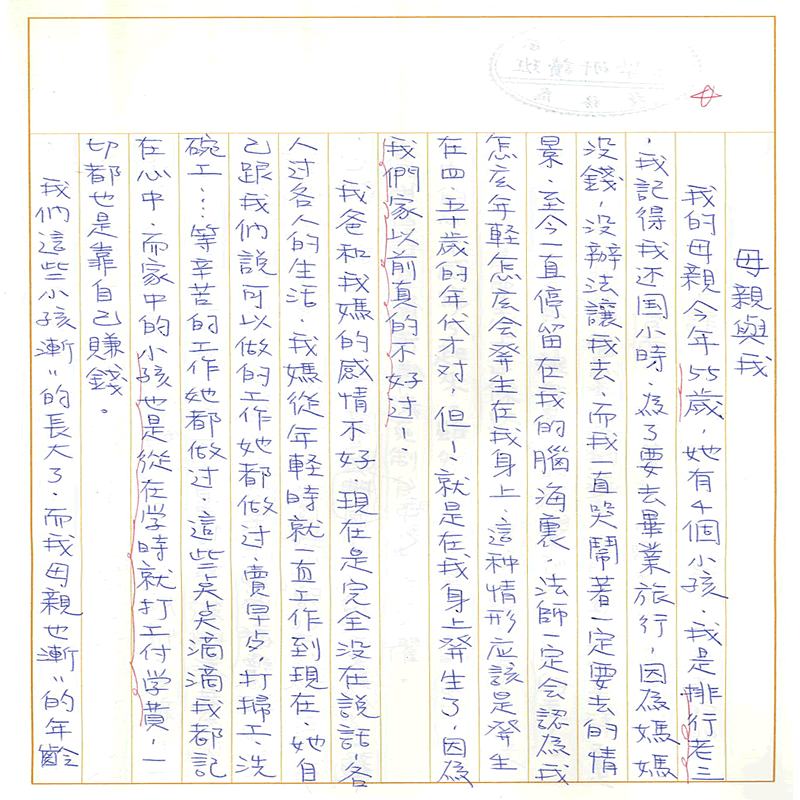 母親與我
我的母親今年55歲，她有4個小孩．我是排行老三
．我記得我还国小時．為了要去畢業旅行，因為媽媽
没錢，没辦法讓我去．而我一直哭鬧著一定要去的情
景．至今一直停留在我的腦海裏．法師一定会認為我
怎么年軽怎么会発生在我身上．這种情形应該是発生
在四．五十歲的年代才对，但！就是在我身上発生了，因為
我們家以前真的不好过！．
我爸和我媽的感情不好．現在是完全没在説話，各
人过各人的生活．我媽從年軽時就一直工作到現在．她自
己跟我們説可以做的工作她都做过．賣早点，打掃工、洗
碗工‥‥等辛苦的工作她都做过．這些点点滴滴我都記
在心中．而家中的小孩也是從在学時就打工付学費，一
切都也是靠自己賺錢。
我們這些小孩漸〃的長大了．而我母親也漸〃的年齡